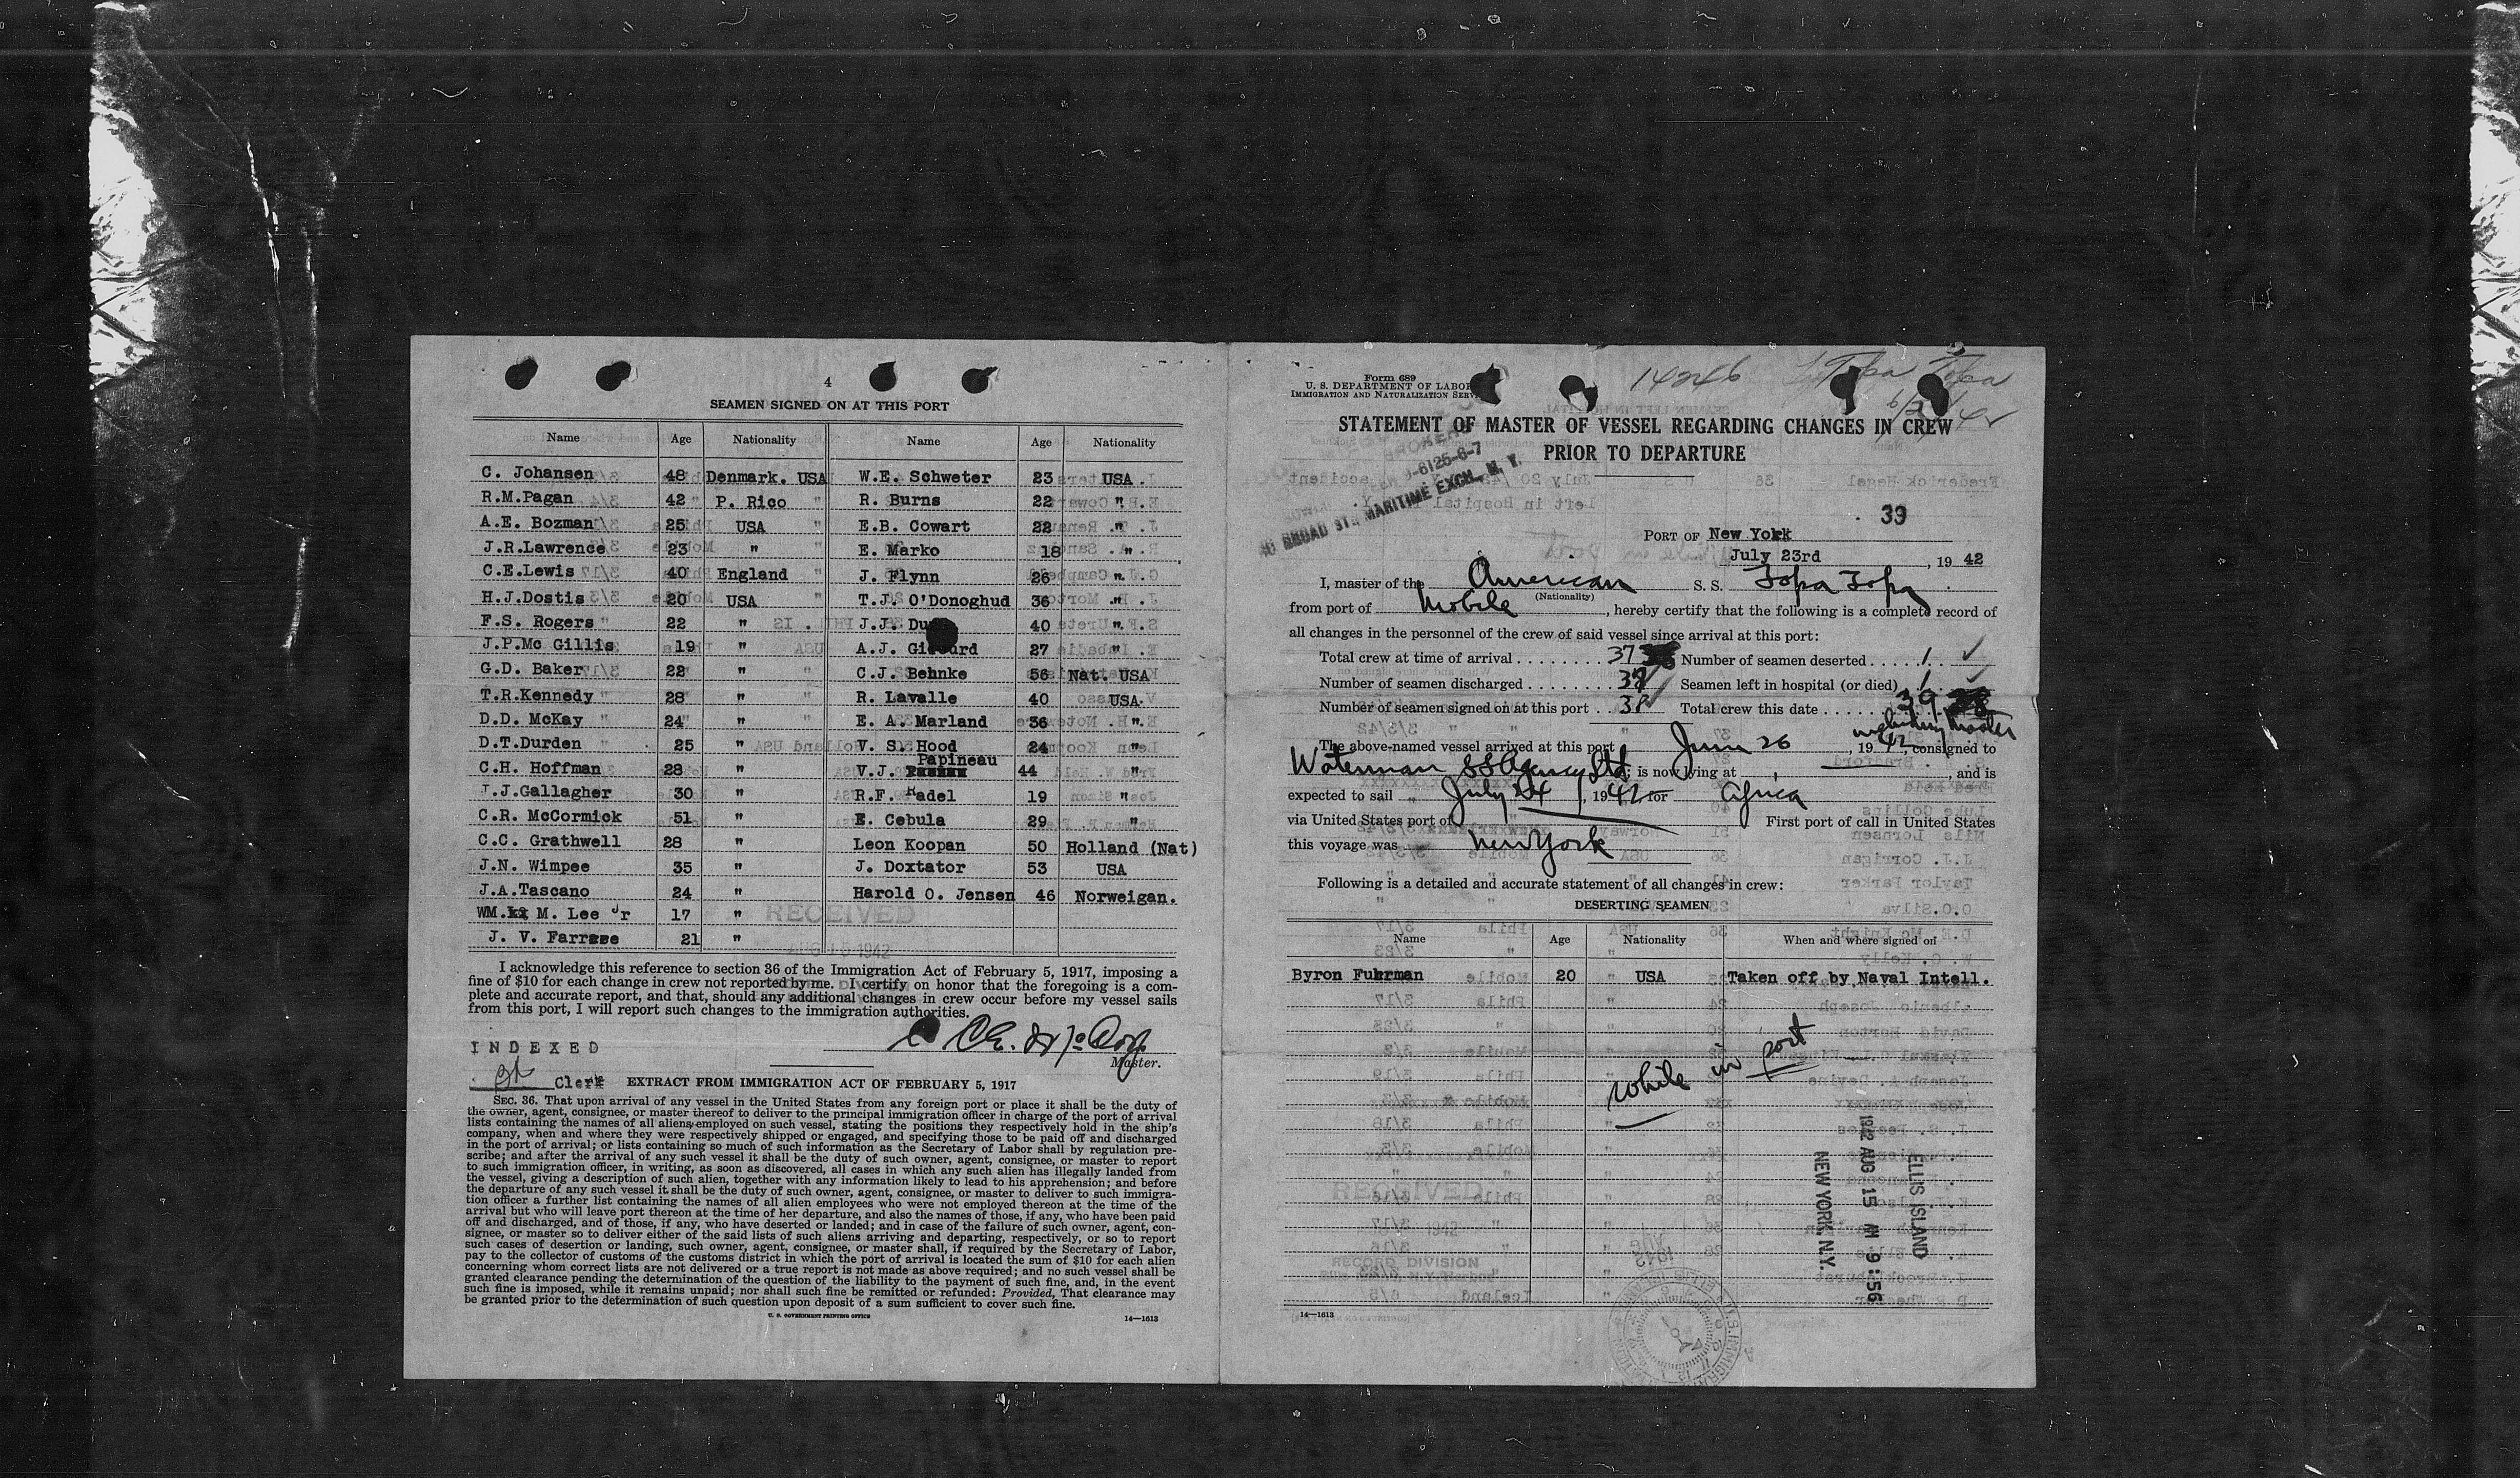 4
SEAMEN SIGNED ON AT THIS PORT
Name Age Nationality Name Age Nationality
C. Johansen 48 Denmark. USA W.E. Schweter 23 USA
R.M.Pagan 42 P. Rico " R. Burns 22 "
A.E. Bozman 25 USA " E.B. Cowart 22 "
J.R.Lawrence 23 " " E. Marko 18 "
C.E.Lewis 40 England " J. Flynn 26 "
H.J.Dostis 20 USA " T.J. O'Donoghud 36 "
F.S. Rogers 22 " J.J. 40 "
J.P.Mc Gillis 19 " A.J. 27 "
G.D. Baker 22 " C.J. Behnke 56 Nat. USA
T.R.Kennedy 28 " R. Lavalle 40 USA
D.D. McKay 24 " E. A. Marland 36 "
D.T.Durden 25 " V. S. Hood 24 "
C.H. Hoffman 28 " V.J. Papineau 44 "
J.J.Gallagher 30 " R.F. Radel 19 "
C.R. McCormick 51 " E. Cebula 29 "
C.C. Grathwell 28 " Leon Koopan 50 Holland (Nat)
J.N. Wimpee 35 " J. Doxtator 53 USA
J.A.Tascano 24 " Harold O. Jensen 46 Norweigan.
WM. M. Lee Jr 17 "
J. V. 21 "
RECEIVED
I acknowledge this reference to section 36 of the Immigration Act of February 5, 1917, imposing a
fine of $10 for each change in crew not reported by me. I certify on honor that the foregoing is a com-
plete and accurate report, and that, should any additional changes in crew occur before my vessel sails
from this port, I will report such changes to the immigration authorities.
INDEXED
Master.
Clerk EXTRACT FROM IMMIGRATION ACT OF FEBRUARY 5, 1917
SEC. 36. That upon arrival of any vessel in the United States from any foreign port or place it shall be the duty of
the owner, agent, consignee, or master thereof to deliver to the principal immigration officer in charge of the port of arrival
lists containing the names of all aliens employed on such vessel, stating the positions they respectively hold in the ship's
company, when and where they were respectively shipped or engaged, and specifying those to be paid off and discharged
in the port of arrival; or lists containing so much of such information as the Secretary of Labor shall by regulation pre-
scribe; and after the arrival of any such vessel it shall be the duty of such owner, agent, consignee, or master to report
to such immigration officer, in writing, as soon as discovered, all cases in which any such alien has illegally landed from
the vessel, giving a description of such alien, together with any information likely to lead to his apprehension; and before
the departure of any such vessel it shall be the duty of such owner, agent, consignee, or master to deliver to such immigra-
tion officer a further list containing the names of all alien employees who were not employed thereon at the time of the
arrival but who will leave port thereon at the time of her departure, and also the names of those, if any, who have been paid
off and discharged, and of those, if any, who have deserted or landed; and in case of the failure of such owner, agent, con-
signee, or master so to deliver either of the said lists of such aliens arriving and departing, respectively, or so to report
such cases of desertion or landing, such owner, agent, consignee, or master shall, if required by the Secretary of Labor,
pay to the collector of customs of the customs district in which the port of arrival is located the sum of $10 for each alien
concerning whom correct lists are not delivered or a true report is not made as above required; and no such vessel shall be
granted clearance pending the determination of the question of the liability to the payment of such fine, and, in the event
such fine is imposed, while it remains unpaid; nor shall such fine be remitted or refunded: Provided, That clearance may
be granted prior to the determination of such question upon deposit of a sum sufficient to cover such fine.
U. S. GOVERNMENT PRINTING OFFICE 14—1613
Form 689
U. S. DEPARTMENT OF LABOR
IMMIGRATION AND NATURALIZATION SERV
14246 Topa Topa
STATEMENT OF MASTER OF VESSEL REGARDING CHANGES IN CREW
PRIOR TO DEPARTURE
BROAD ST. MARITIME EXCH., N. Y.
39
PORT OF New York
July 23rd, 1942
I, master of the American S. S. Topa Topa
(Nationality)
from port of Mobile, hereby certify that the following is a complete record of
all changes in the personnel of the crew of said vessel since arrival at this port:
Total crew at time of arrival 37 Number of seamen deserted 1
Number of seamen discharged Seamen left in hospital (or died) 1
Number of seamen signed on at this port 38 Total crew this date 39
including Master
The above-named vessel arrived at this port June 26, 1942, consigned to
Waterman SS Agency Ltd; is now lying at , and is
expected to sail July 24, 1942 for Africa
via United States port of First port of call in United States
this voyage was New York
Following is a detailed and accurate statement of all changes in crew:
DESERTING SEAMEN
Name Age Nationality When and where signed on
Byron Fuhrman 20 USA Taken off by Naval Intell.
while in port
ELLIS ISLAND
1942 AUG 15 AM 9:56
NEW YORK, N.Y.
RECEIVED
RECORD DIVISION
14—1613